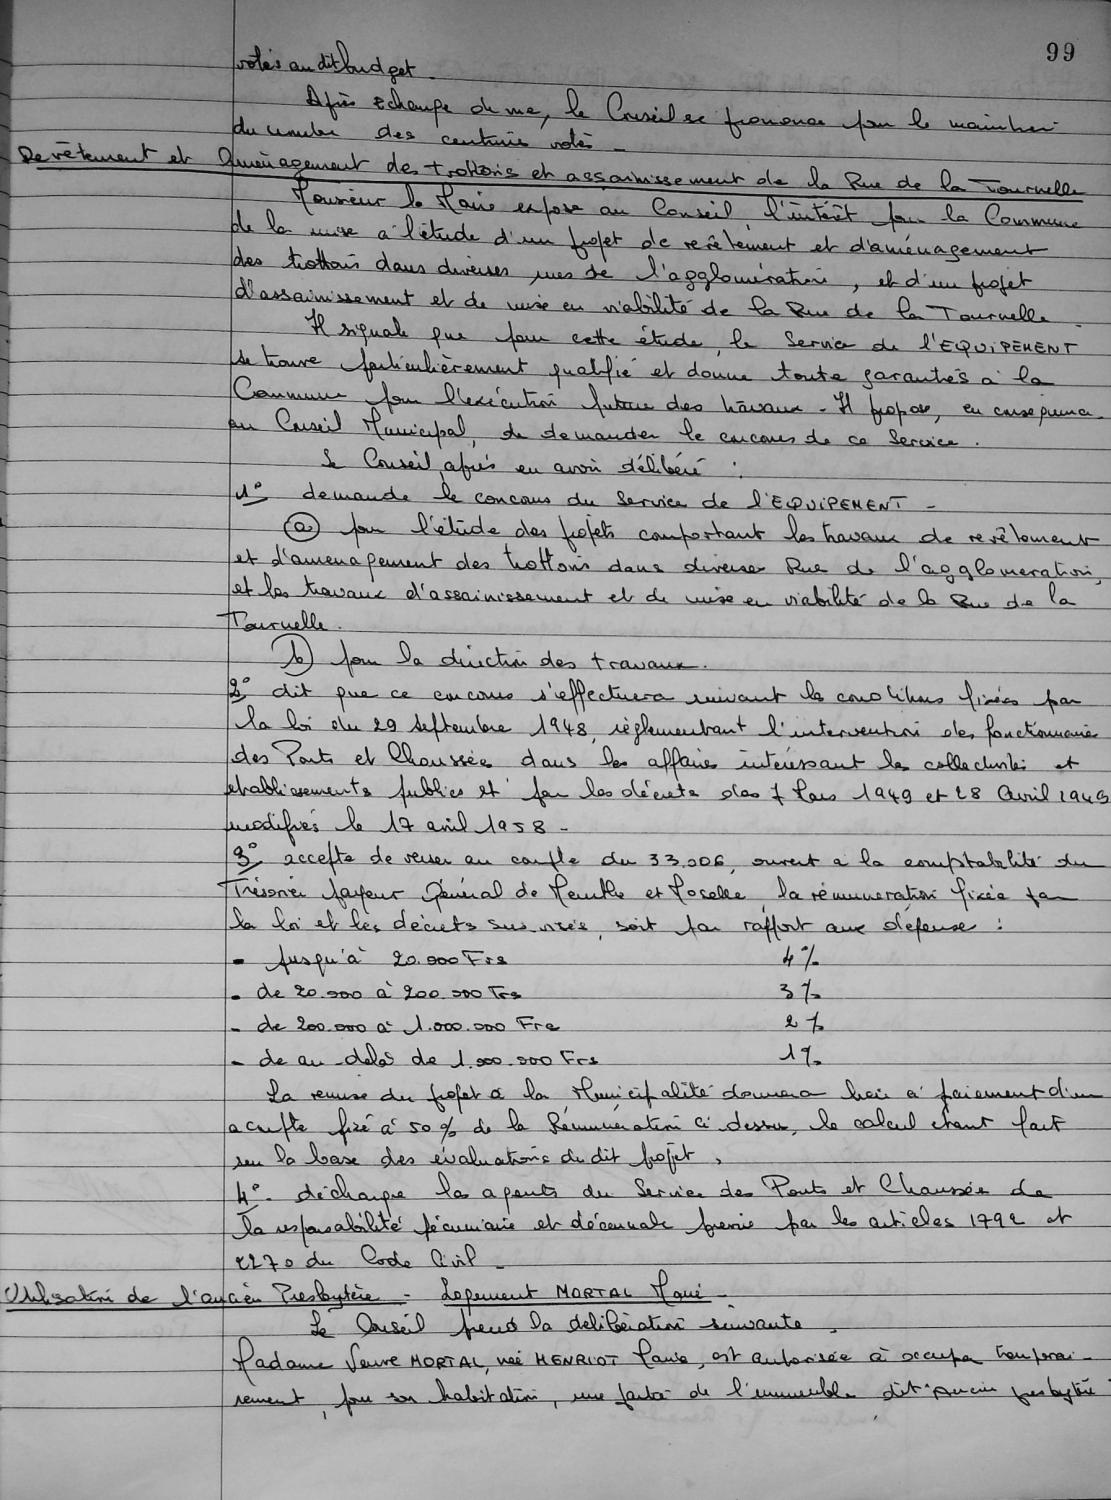 99
votés au dit budget.
Après échange de vue, le Conseil se prononce pour le maintien
du nombre des centimes votés -
Revêtement et Aménagement des trottoirs et assainissement de la Rue de la Tournelle
Monsieur le Maire expose au Conseil, l'intérêt pour la Commune
de la mise à l'étude d'un projet de revêtement et d'aménagement
des trottoirs dans diverses rues de l'agglomération, et d'un projet
d'assainissement et de mise en viabilité de la Rue de la Tournelle.
Il signale que pour cette étude, le Service de l'EQUIPEMENT
se trouve particulièrement qualifié et donne toute garanties à la
Commune pour l'exécution future des travaux - Il propose, en conséquence
au Conseil Municipal, de demander le concours de ce Service.
Le Conseil, après en avoir délibéré :
1° demande le concours du Service de l'EQUIPEMENT -
(a) pour l'étude des projets comportant les travaux de revêtement
et d'aménagement des trottoirs dans diverses Rue de l'agglomération,
et les travaux d'assainissement et de mise en viabilité de la Rue de la
Tournelle.
(b) pour la direction des travaux.
2° dit que ce concours s'effectuera suivant les conditions fixées par
la loi du 29 Septembre 1948, règlementant l'intervention des fonctionnaires
des Ponts et Chaussées dans les affaires intéressant les collectivités et
établissements publics et par les décrets des 7 Mars 1949 et 28 Avril 1949
modifiés le 17 avril 1958 -
3° accepte de verser au compte du 33.006, ouvert à la comptabilité du
Trésorier payeur Général de Meurthe et Moselle, la rémunération fixée par
la loi et les décrets sus visés, soit par rapport aux dépense :
- jusqu'à 20.000 Frs 4%
- de 20.000 à 200.000 Frs 3%
- de 200.000 à 1.000.000 Frs 2%
- de au-delà de 1.000.000 Frs 1%
La remise du projet à la Municipalité donnera lieu à paiement d'un
acompte fixé à 50% de la Rémunération ci dessus, le calcul étant fait
sur la base des évaluations du dit projet,
4° - décharge les agents du Service des Ponts et Chaussées de
la responsabilité pécuniaire et décennale prévue par les articles 1792 et
2270 du Code Civil -
Utilisation de l'ancien Presbytère - Logement MORTAL Marie -
Le Conseil prend la délibération suivante.
Madame Veuve MORTAL, née HENRIOT Marie, est autorisée à occuper temporai-
rement, pour son habitation, une partie de l'immeuble dit "Ancien presbytère"